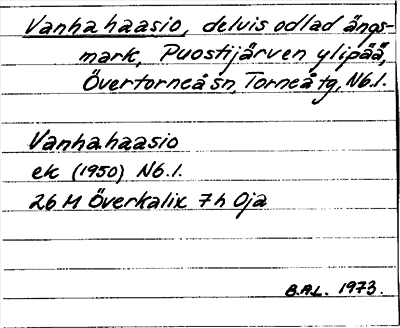 Vanha haasio, delvis odlad ängs-
mark, Puostijärven ylipää,
Övertorneå sn, Torneå tg, Nb.l.
Vanha haasio
ek (1950) Nb.l.
26 M Överkalix 7 h Oja
B.A.L. 1973.